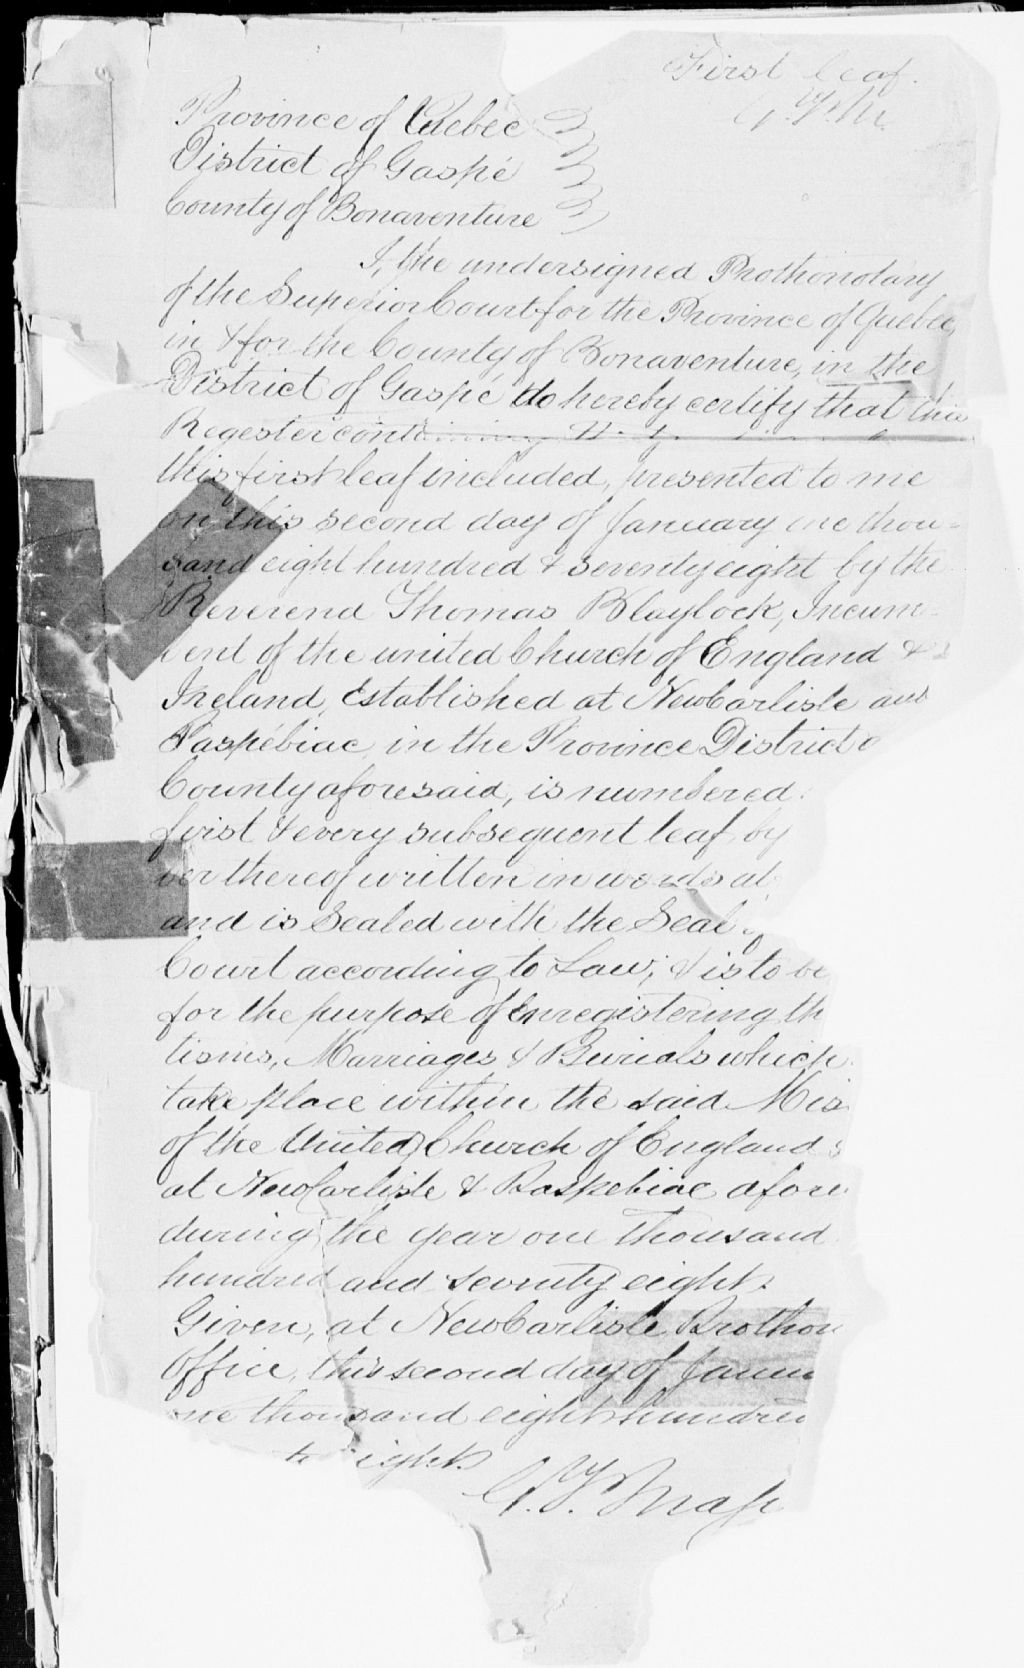 First leaf.
Province of Quebec
District of Gaspé
County of Bonaventure
I, the undersigned Prothonotary
of the Superior Court for the Province of Quebec,
in & for the County of Bonaventure, in the
District of Gaspé do hereby certify that this
Regester containing
this first leaf included, presented to me
on this second day of January one thou-
sand eight hundred & seventy eight by the
Reverend Thomas Blaylock, Incum-
bent of the united Church of England &
Ireland, Established at New Carlisle and
Paspébiac, in the Province District
County aforesaid, is numbered
first & every subsequent leaf by
ber thereof written in words at
and is Sealed with the Seal
Court according to Law; & is to be
for the purpose of Enregistering th
tisms, Marriages & Burials which
take place within the said Mis
of the United Church of England
at New Carlisle & Paspebiac afore
during the year one thousand
hundred and seventy eight.
Given, at New Carlisle, Prothon
Office, this second day of Janu
one thousand eight hundred
eight